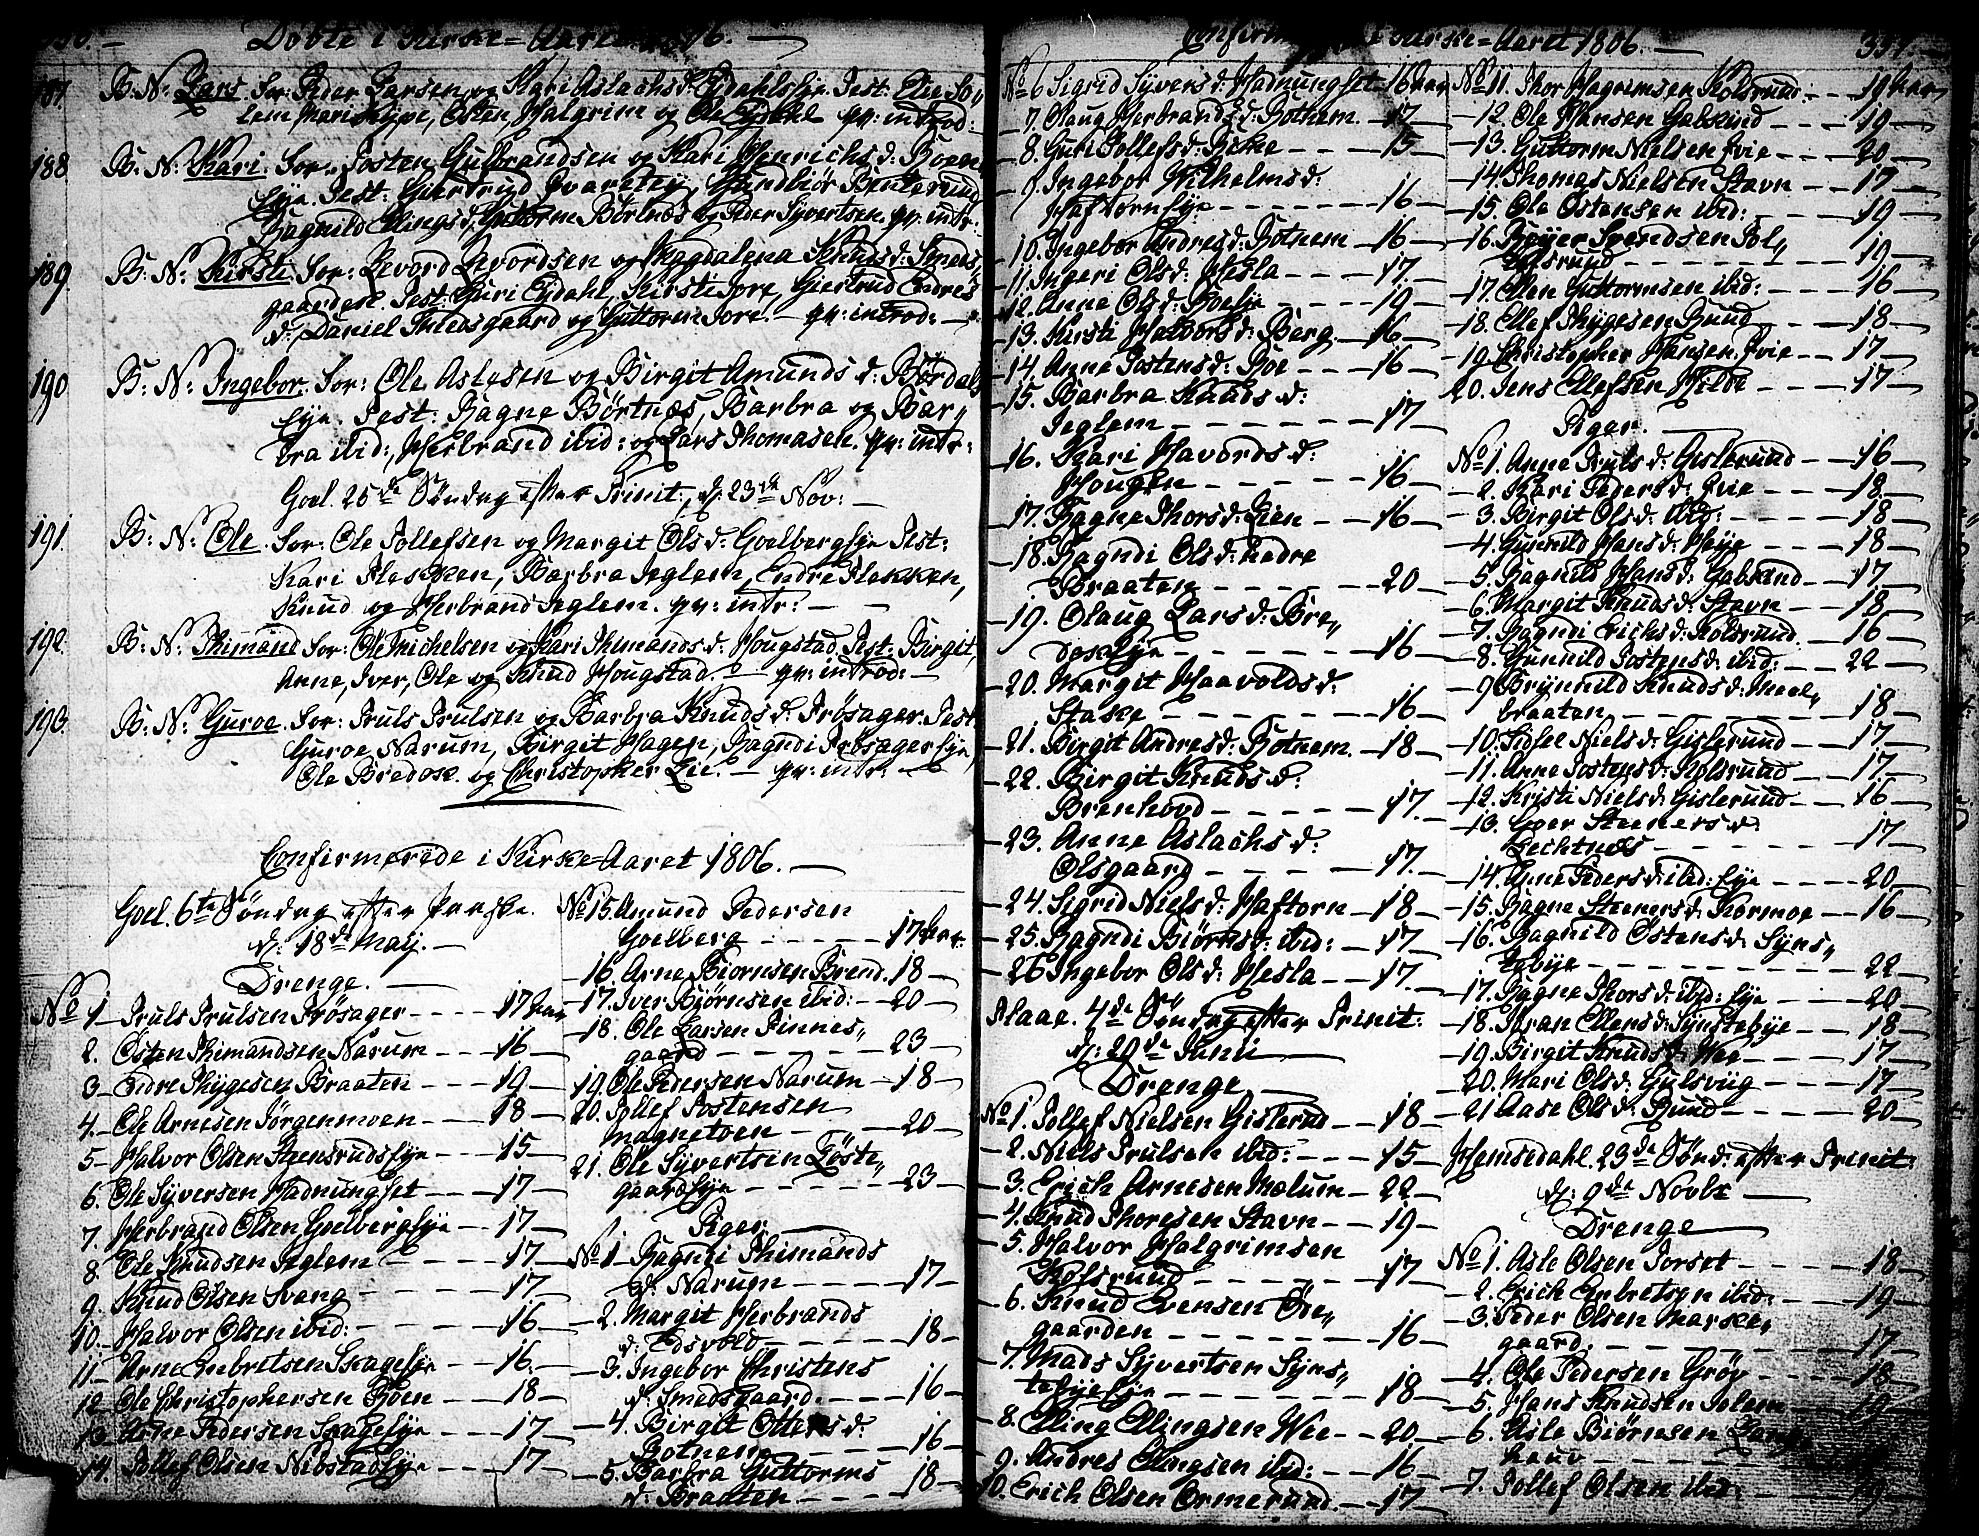 Döbte i Kirke-Aaret 1806.
187. B: N: Lars. For: Peder Larsen og Kari Aslachsd: Eydahlseye Test: Elie So,,
lem, Mari Skyve, Østen, Halgrim og Ole Eydahl qv: introd:
188 B: N: Kari. For: Josten Gulbrandsen og Kari Henrichsd: Boen
Eye. Test: Giertrud Svarteig, Gundbiør Bentsrud
Ragnild Ellingsd, Guttorm Börtnæs og Peder Syvertsen. qv: intr:
189 B: N: Kirsti For: Levord Levordsen og Magdalena Knudsd: Smeds,,
gaarden. Test: Guri Eydahl, Kirsti Tore, Giertrud Endres
d: Daniel Smedsgaard og Guttorm Tore. qv: introd:
190 B: N: Ingebor. For: Ole Aslesen og Birgit Amunds d: Bördals
Eye. Test: Ragne Börtnæs, Barbra og Bar,,
bra ibid:, Herbrand ibid: og Lars Thomasen. qv: intr:
Goel. 25de Söndag efter Trinit:, d: 23de Nov:
191. B: N: Ole. For: Ole Tollefsen og Margit Olsd: Goelbergeye Test:
Kari Flekken, Barbra Jeglem, Endre Flekken,
Knud og Herbrand Jeglem. qv: intr:
192. B: N: Thimand For: Ole Michelsen og Kari Thimandsd: Hougstad. Test: Birgit,
Anne, Iver, Ole og Knud Hougstad. qv: introd:
193. B: N: Guroe. For: Truls Trulsen og Barbra Knudsd: Frösager. Test:
Guroe Narum, Birgit Hagen, Ragndi Frösagereye,
Ole Bredose og Christopher Lie. qv: intr:
Confirmerede i Kirke-Aaret 1806.
Goel. 6te Söndag efter Paaske.
d: 18de Maij.
Drenge.
No 1. Truls Trulsen Frösager 17 Aar
2. Østen Thimandsen Narum 16
3. Endre Thygesen Braaten 19
4. Ole Arnesen Jörgenmoen 18
5 Halvor Olsen Steensrudseye 15
6. Ole Syversen Hadnungset 17
7. Herbrand Olsen Goelbergeye 17
8. Ole Knudsen Jeglem 17
9. Knud Olsen Svang 17
10. Halvor Olsen ibid: 16
11. Arne Embretsen Skageeye 16.
12 Ole Christophersen Roen 18
13. Arne Pedersen Skageeye 17
14. Tollef Olsen Nibstadeye 17
No 15. Amund Pedersen
Goelberg 17 Aar.
16. Arne Biornsen Brend. 18
17. Iver Björnsen ibid: 20
18. Ole Larsen Finnes,,
gaard 23
19. Ole Pedersen Narum 18
20. Tollef Jostensen
Magnetoen 20
21. Ole Syvertsen Göste,,
gaardseye 23
Piger.
No 1. Ragndi Thimands
d: Narum 17
2. Margit Herbrands
d: Edsvold 18
3. Ingebor Christens
d: Smedsgaard 16
4. Birgit Ottersd
Botnem 16
5. Barbra Guttorms
d: Braaten 18
Confirmerede i Kirke-Aaret 1806. 337.
No 6 Sigrid Syversd: Hadnungset 16 Aar
7. Olaug Herbrandsd: Bothem 17
8. Guri Tollefsd: Ficke 15
9. Ingebor Wilhelmsd:
Haftorneye 16
10. Ingebor Andresd: Botnem 16
11. Ingeri Olsd: Hesla 17
12. Anne Olsd: Boeeye 19
13. Kirsti Halvorsd: Berg 16
14. Anne Jostensd: Boe 16
15. Barbra Knudsd:
Jeglem 17
16. Kari Havordsd:
Hougen 16
17. Ragne Thorsd: Lien 16
18. Ragndi Olsd: nedre
Braaten 20
19. Olaug Larsd: Bre,,
doseeye 16
20. Margit Haavoldsd:
Stake 16
21. Birgit Andresd: Botnem 18
22. Birgit Knudsd:
Brenhovd 17.
23. Anne Aslachsd:
Olsgaard 17.
24. Sigrid Nielsd: Haftorn 18
25. Ragndi Biörnsd: ibid: 17
26 Ingebor Olsd: Hesla 17.
Aaae. 4de Söndag efter Trinit:
d: 29de Junii
Drenge
No 1. Tollef Nielsen Gislerud 18
2. Niels Trulsen ibid: 15
3. Erich Arnesen Mælum 22
4. Knud Thoresen Stavn 19
5. Halvor Halgrimsen
Kolsrund 17
6. Knud Evensen Öre,,
gaarden 16
7. Mads Syvertsen Syns,,
tebyeeye 18
8. Elling Ellingsen Wee 20
9. Andres Ellingsen ibid: 16
10. Erich Olsen Ormerund 17
No 11. Thor Hagrimsen Kolsrund 19 Aar
12. Ole Hansen Gulsrud 19
13. Guttorm Nielsen Evie 20
14. Thomas Nielsen Stavn 17
15. Ole Ostensen ibid: 19
16. Reyer Svendsen Kol,,
srund 19
17. Ellen Guttormsen ibid: 16
18. Ellef Thygesen Rund 18
19. Christopher Hansen Evie 17
20. Jens Ellefsen Hilde 17
Piger.
No 1. Anne Trulsd: Gislerund 16
2. Kari Pedersd: Evie 18
3. Birgit Olsd: ibid: 18
4. Gunnild Hansd: Høye 18
5. Ragnild Hansd: Gulsrud 17
6. Margit Knudsd: Stavn 18
7. Ragndi Erichsd: Kolsrund 16
8. Gunnild Jostensd: ibid: 22
9 Brynnild Knudsd: Meel,,
braaten 18
10. Sidsel Nielsd: Gislerund 17
11. Anne Jostensd: Kolsrund 17.
12. Kristi Nielsd: Gislerund 16
13. Goer Steenersd:
Techtnæs 17
14. Anne Pedersd: ibid: Eye 20
15. Ragne Steenersd: Kormoe 16
16. Ragnild Östensd: Syns,,
tebye 22
17. Ragne Thorsd: ibid: Eye 20
18. Jøran Ellensd: Synstebye 18
19. Birgit Knudsd: Wee 17
20. Mari Olsd: Gulsvig 17
21 Aase Olsd: Rund 20
Hemsedahl. 23de Sönd: efter Trinit:
d: 9de Novbr
Drenge
No 1. Asle Olsen Torset 18
2. Erich Embretsen ibid: 19
3. Peder Olsen Markes,,
gaard 17
4. Ole Pedersen Gröy 18
5. Hans Knudsen Solem 19
6. Asle Biörnsen Lange,,
houv
7. Tollef Olsen ibid: 19